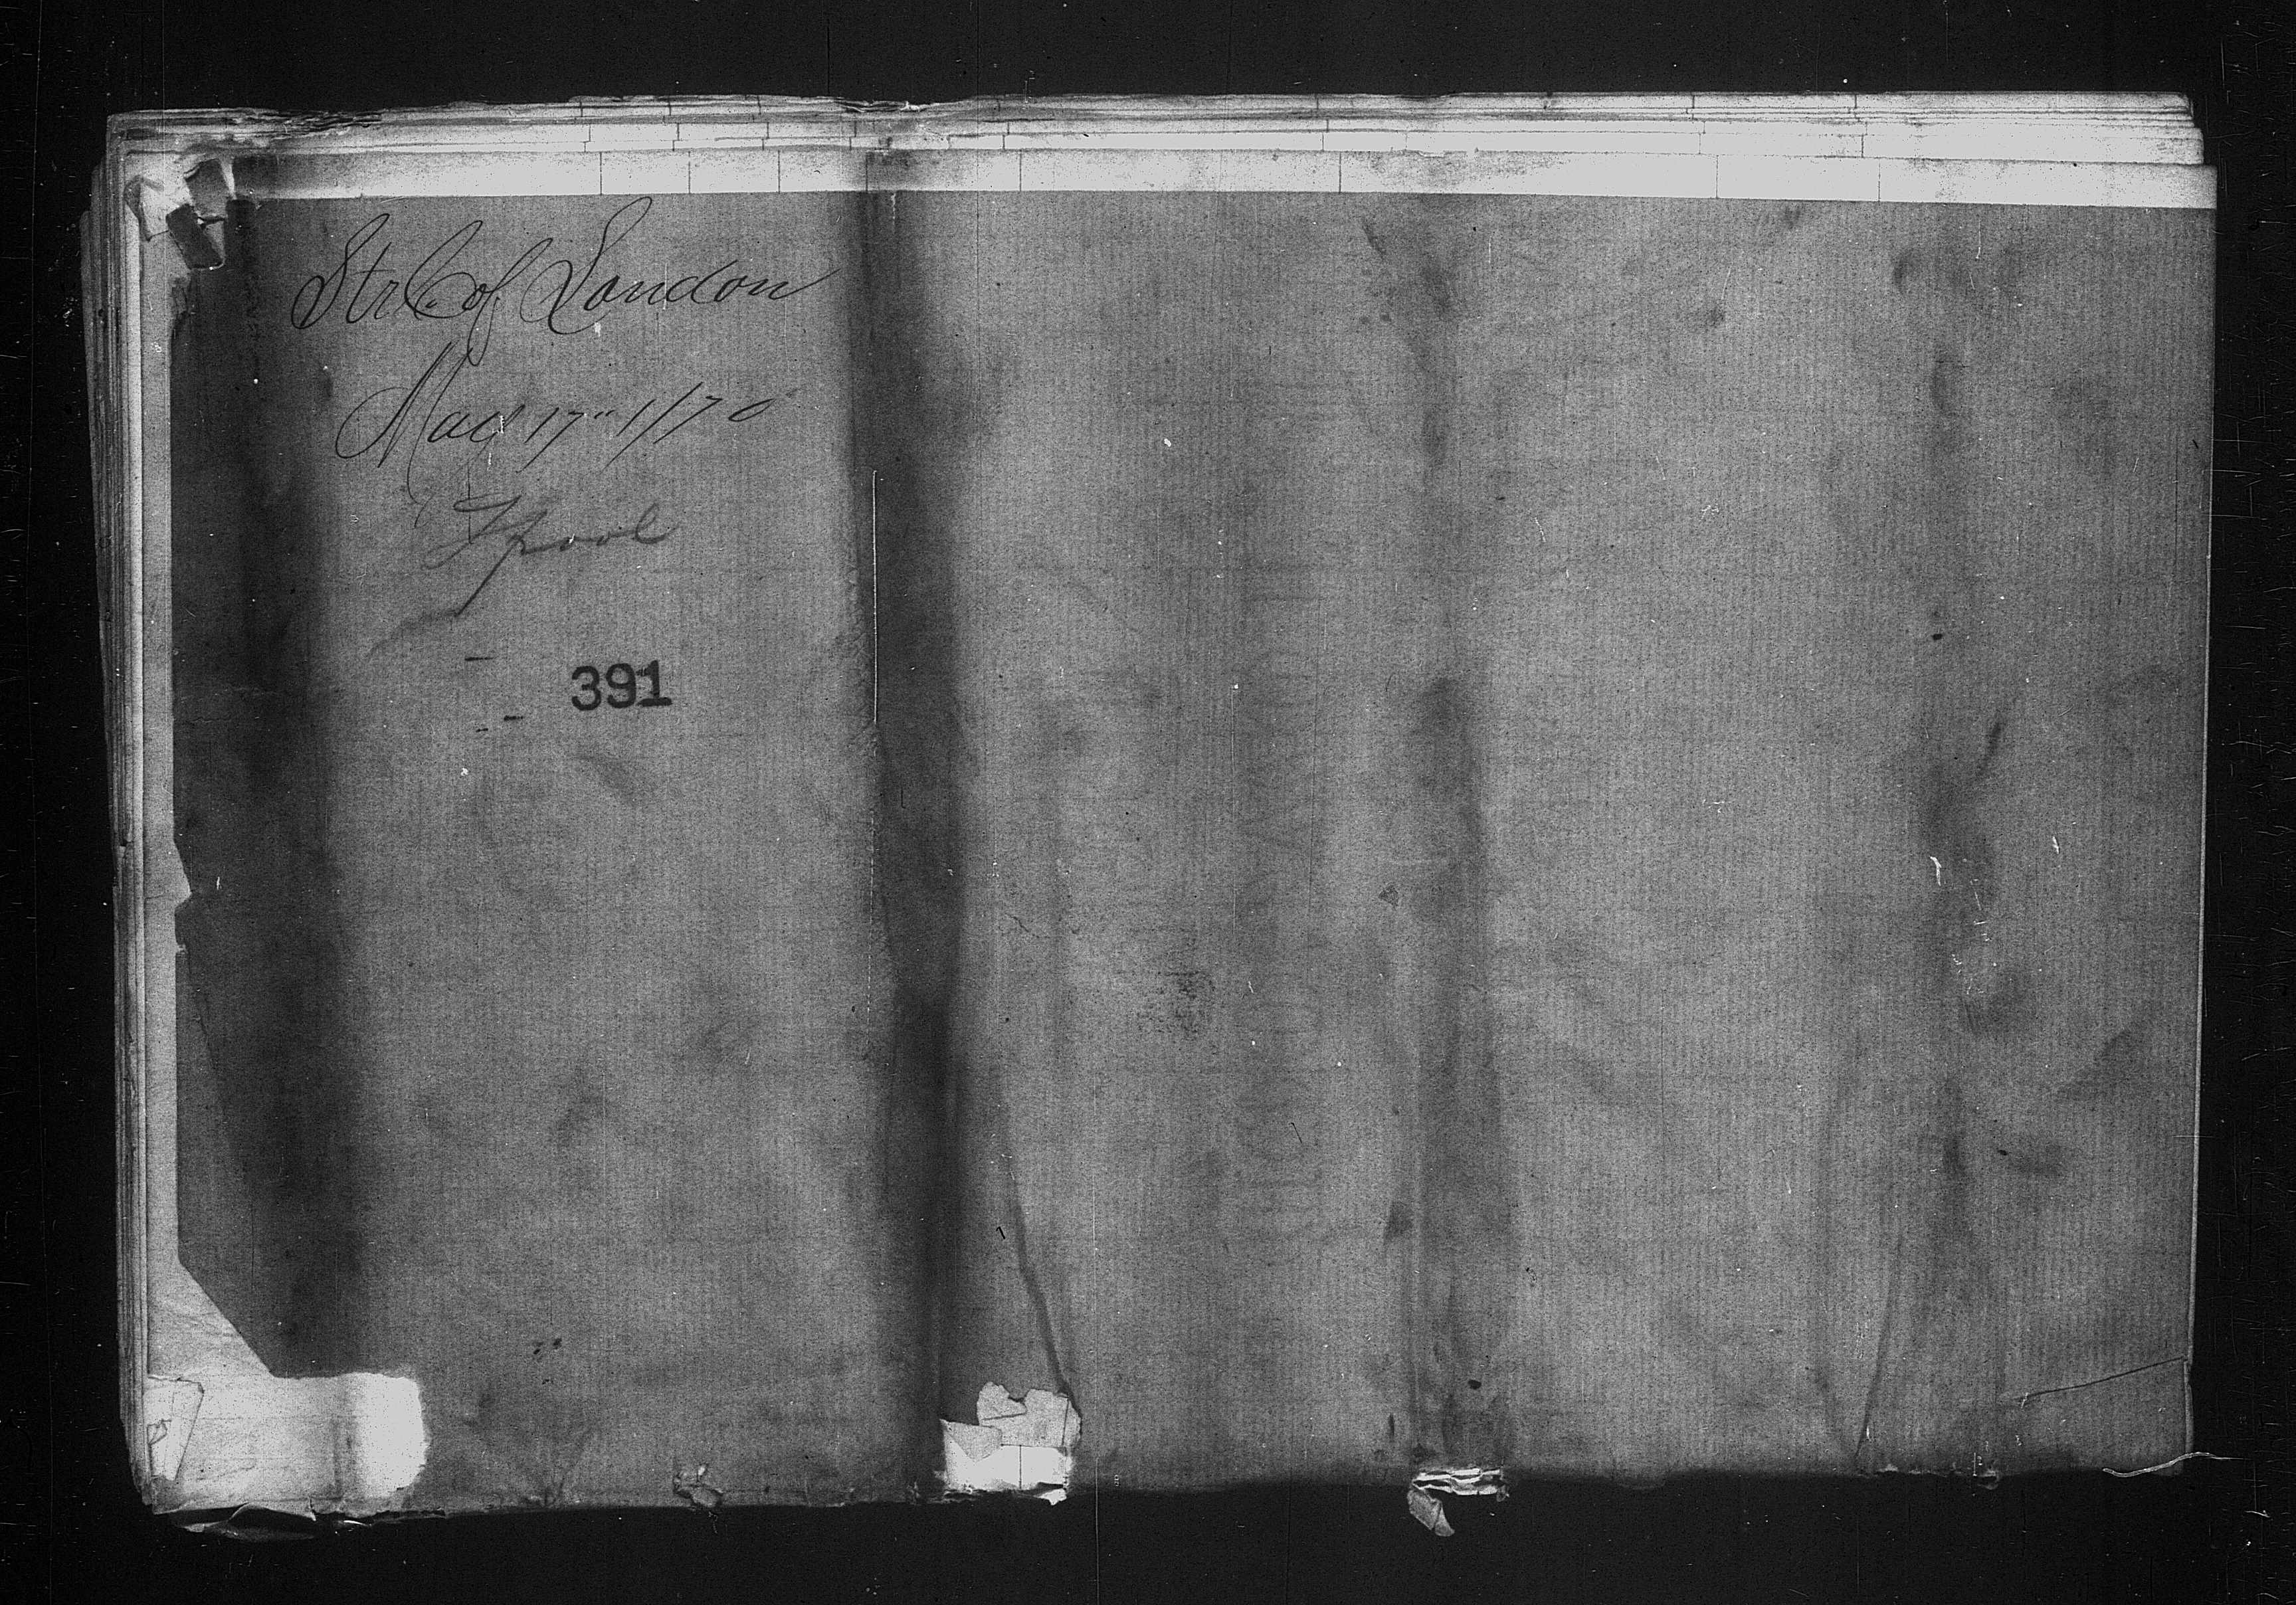 Str C. of London
May 17" 1870
Lpool
391